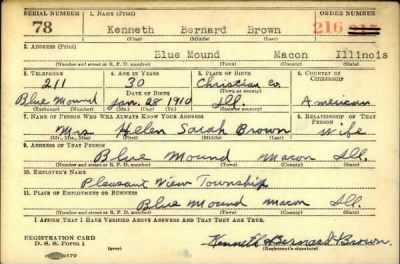 SERIAL NUMBER 1. NAME (Print) ORDER NUMBER
78 Kenneth Bernard Brown 216
(First) (Middle) (Last)
2. ADDRESS (Print)
Blue Mound Macon Illinois
(Number and street or R. F. D. number) (Town) (County) (State)
3. TELEPHONE 4. AGE IN YEARS 5. PLACE OF BIRTH 6. COUNTRY OF CITIZENSHIP
211 30 Christian Co.
DATE OF BIRTH (Town or county)
Blue Mound Jan. 28 1910 Ill. American
(Exchange) (Number) (Mo.) (Day) (Yr.) (State or country)
7. NAME OF PERSON WHO WILL ALWAYS KNOW YOUR ADDRESS 8. RELATIONSHIP OF THAT PERSON
Mrs Helen Sarah Brown Wife
(Mr., Mrs., Miss) (First) (Middle) (Last)
9. ADDRESS OF THAT PERSON
Blue Mound Macon Ill.
(Number and street or R. F. D. number) (Town) (County) (State)
10. EMPLOYER'S NAME
Pleasant View Township
11. PLACE OF EMPLOYMENT OR BUSINESS
Blue Mound Macon Ill.
(Number and street or R. F. D. number) (Town) (County) (State)
I AFFIRM THAT I HAVE VERIFIED ABOVE ANSWERS AND THAT THEY ARE TRUE.
REGISTRATION CARD
D. S. S. Form 1
Kenneth Bernard Brown
(Registrant's signature)